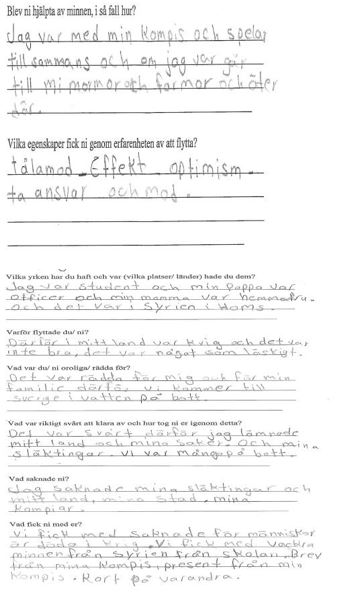 Blev ni hjälpta av minnen, i så fall hur?
Jag var med min kompis och spelar
till sammans och om jag var går
till mi mormor och farmor och äter
där.
Vilka egenskaper fick ni genom erfarenheten av att flytta?
tålamod. Effekt optimism.
ta ansvar och mod.
Vilka yrken har du haft och var (vilka platser/ länder) hade du dem?
Jag var student och min pappa var
officer och min mamma var hemmafru.
Och det var i Syrien i Homs.
Varför flyttade du/ ni?
Därför i mitt land var krig och det var
inte bra, det var något som läskigt.
Vad var du/ ni oroliga/ rädda för?
Det var rädda för mig och för min
familje därför vi kommer till
sverige i vatten på båt.
Vad var riktigt svårt att klara av och hur tog ni er igenom detta?
Det var svårt därför jag lämnade
mitt land och mina saker. Och mina
släktingar. Vi var många på båt.
Vad saknade ni?
Jag saknade mina släktingar och
mitt land, mina stad. mina
kompiar.
Vad fick ni med er?
Vi fick med saknade för människor
är döda i krig. Vi fick med vackra
minnen från Syrien från skolan. Brev
från mina kompis, present från min
kompis. Kort på varandra.